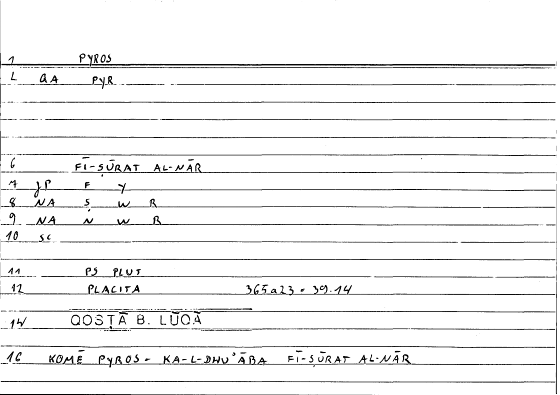 1 PYROS
L QA PYR
6 FĪ-ṢŪRAT AL-NĀR
7 JP F Y
8 NA Ṣ W R
9 NA N W R
10 SC
11 PS PLUT
12 PLACITA 365a23 = 39.14
14 QOSṬĀ B. LŪQĀ
16 KOMĒ PYROS = KA-L-DHU'ĀBA FĪ-ṢŪRAT AL-NĀR